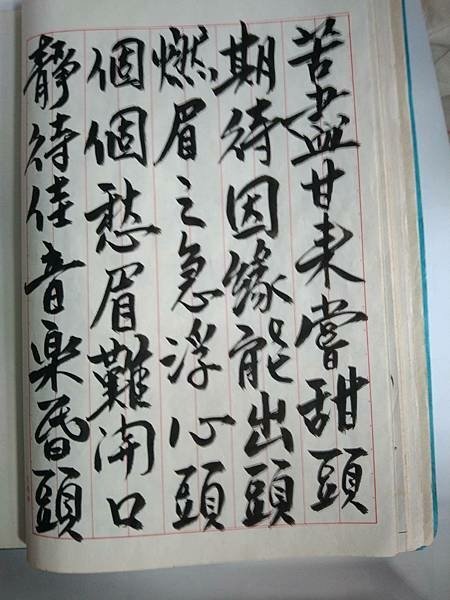 苦盡甘来嘗甜頭
期待因緣能出頭
燃眉之急浮心頭
個個愁眉難開口
靜待佳音樂昏頭